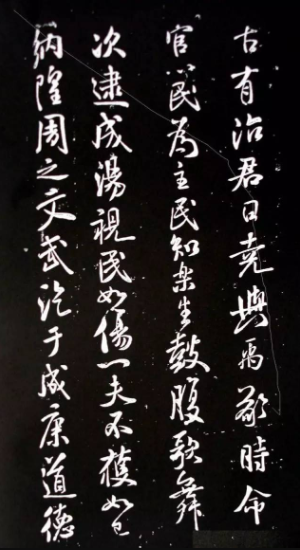 古有治君曰尧與禹敬時命
官以民為主民知樂生鼓腹歌舞
次逮成湯視民如傷一夫不獲如己
納隍周之文武訖于成康道德